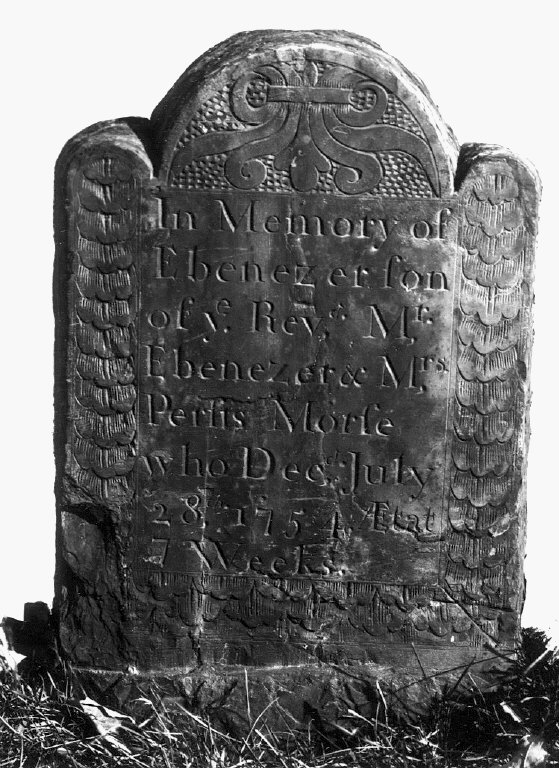 In Memory of
Ebenezer ſon
of yᵉ. Revᵈ. Mʳ.
Ebenezer & Mʳˢ.
Perſis Morſe
who Decᵈ. July
28ᵗʰ. 1754. Ætat
7 Weeks.